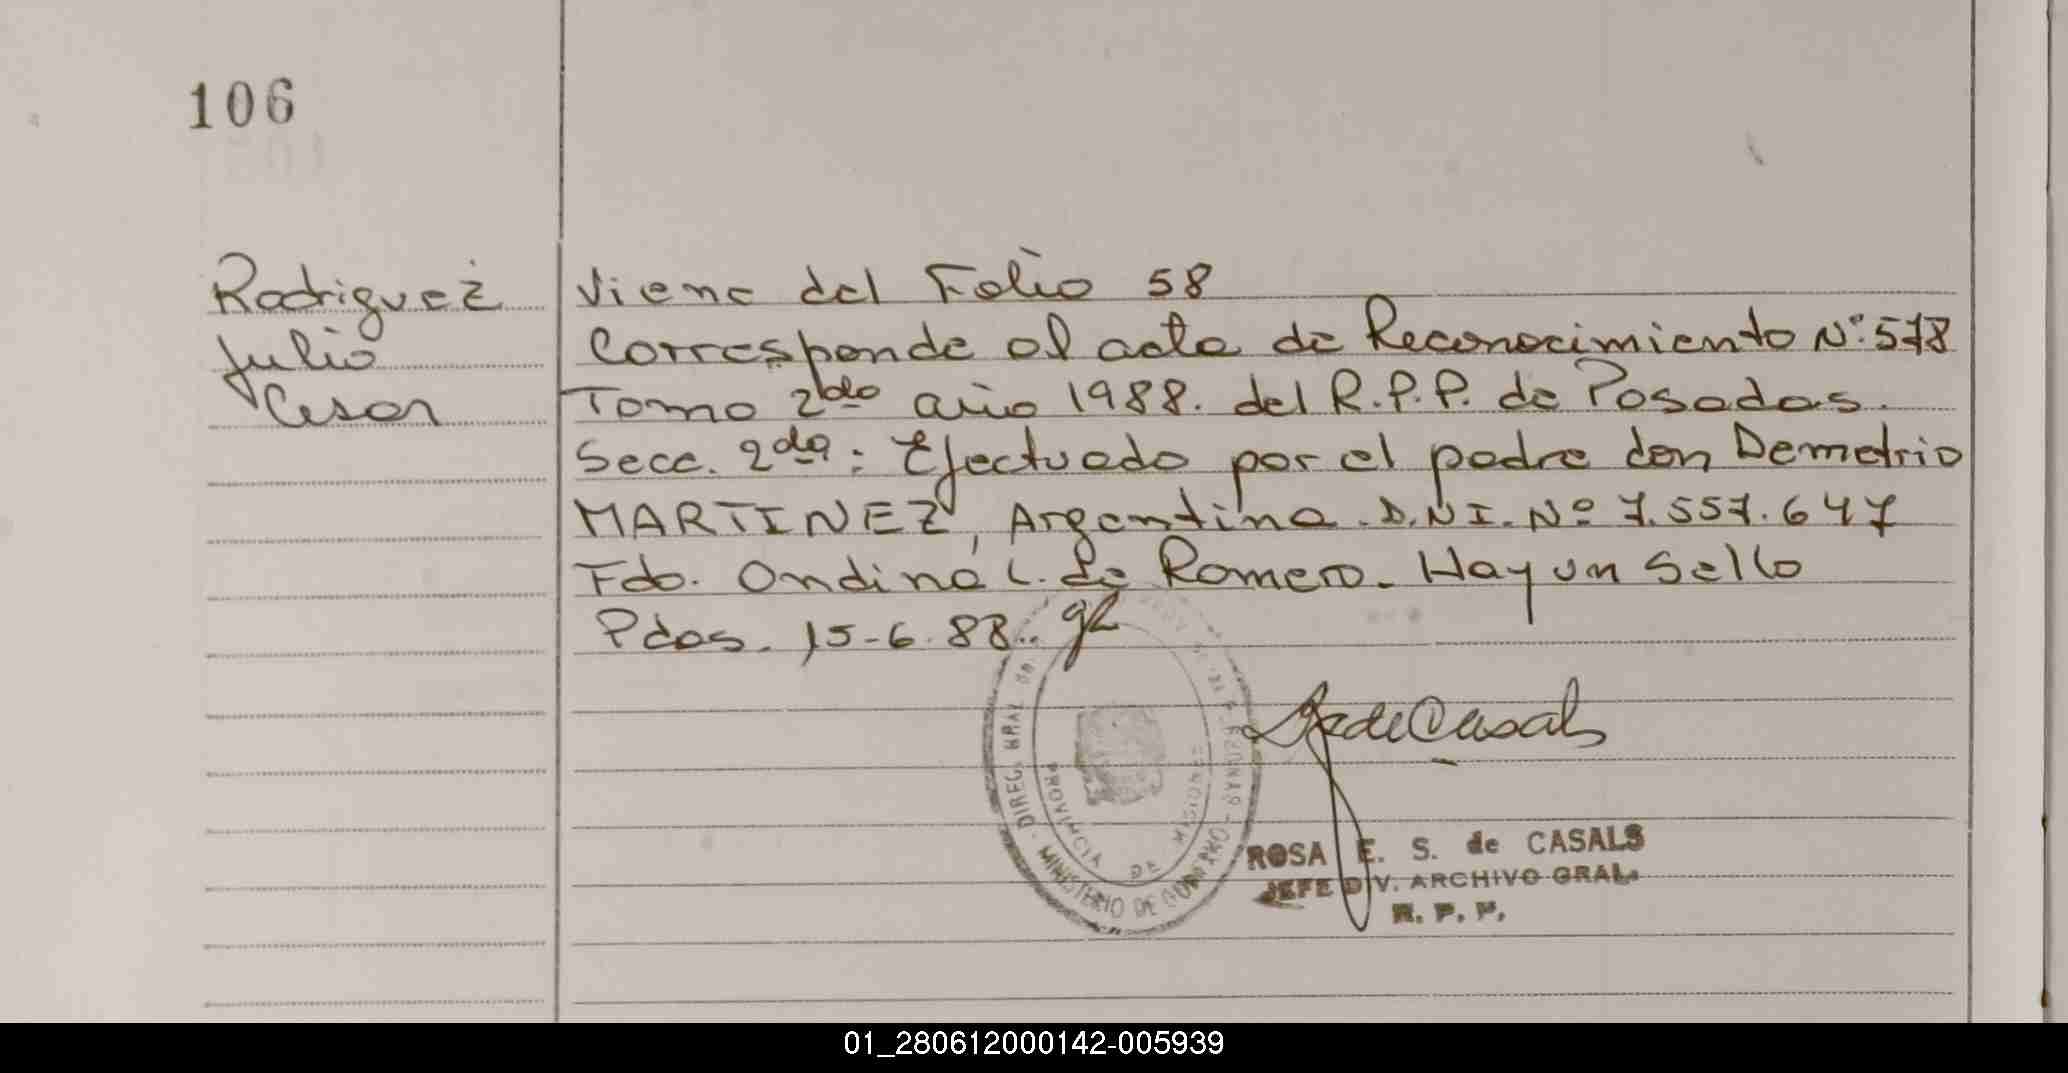 106
Rodriguez
Julio
Cesar
Viene del Folio 58
Corresponde al acta de Reconocimiento Nº 578
Tomo 2do año 1988. del R.P.P. de Posadas.
Secc. 2da: Efectuado por el padre don Demetrio
MARTINEZ, Argentino. D.N.I. Nº 7.557.647
Fdo. Ondina L. de Romero. Hay un Sello
Pdas. 15-6-88..
DIREC. GRAL
PROVINCIA DE MISIONES
MINISTERIO DE GOBIERNO
de Casals
ROSA E. S. de CASALS
JEFE DIV. ARCHIVO GRAL.
R. P. P.
01_280612000142-005939